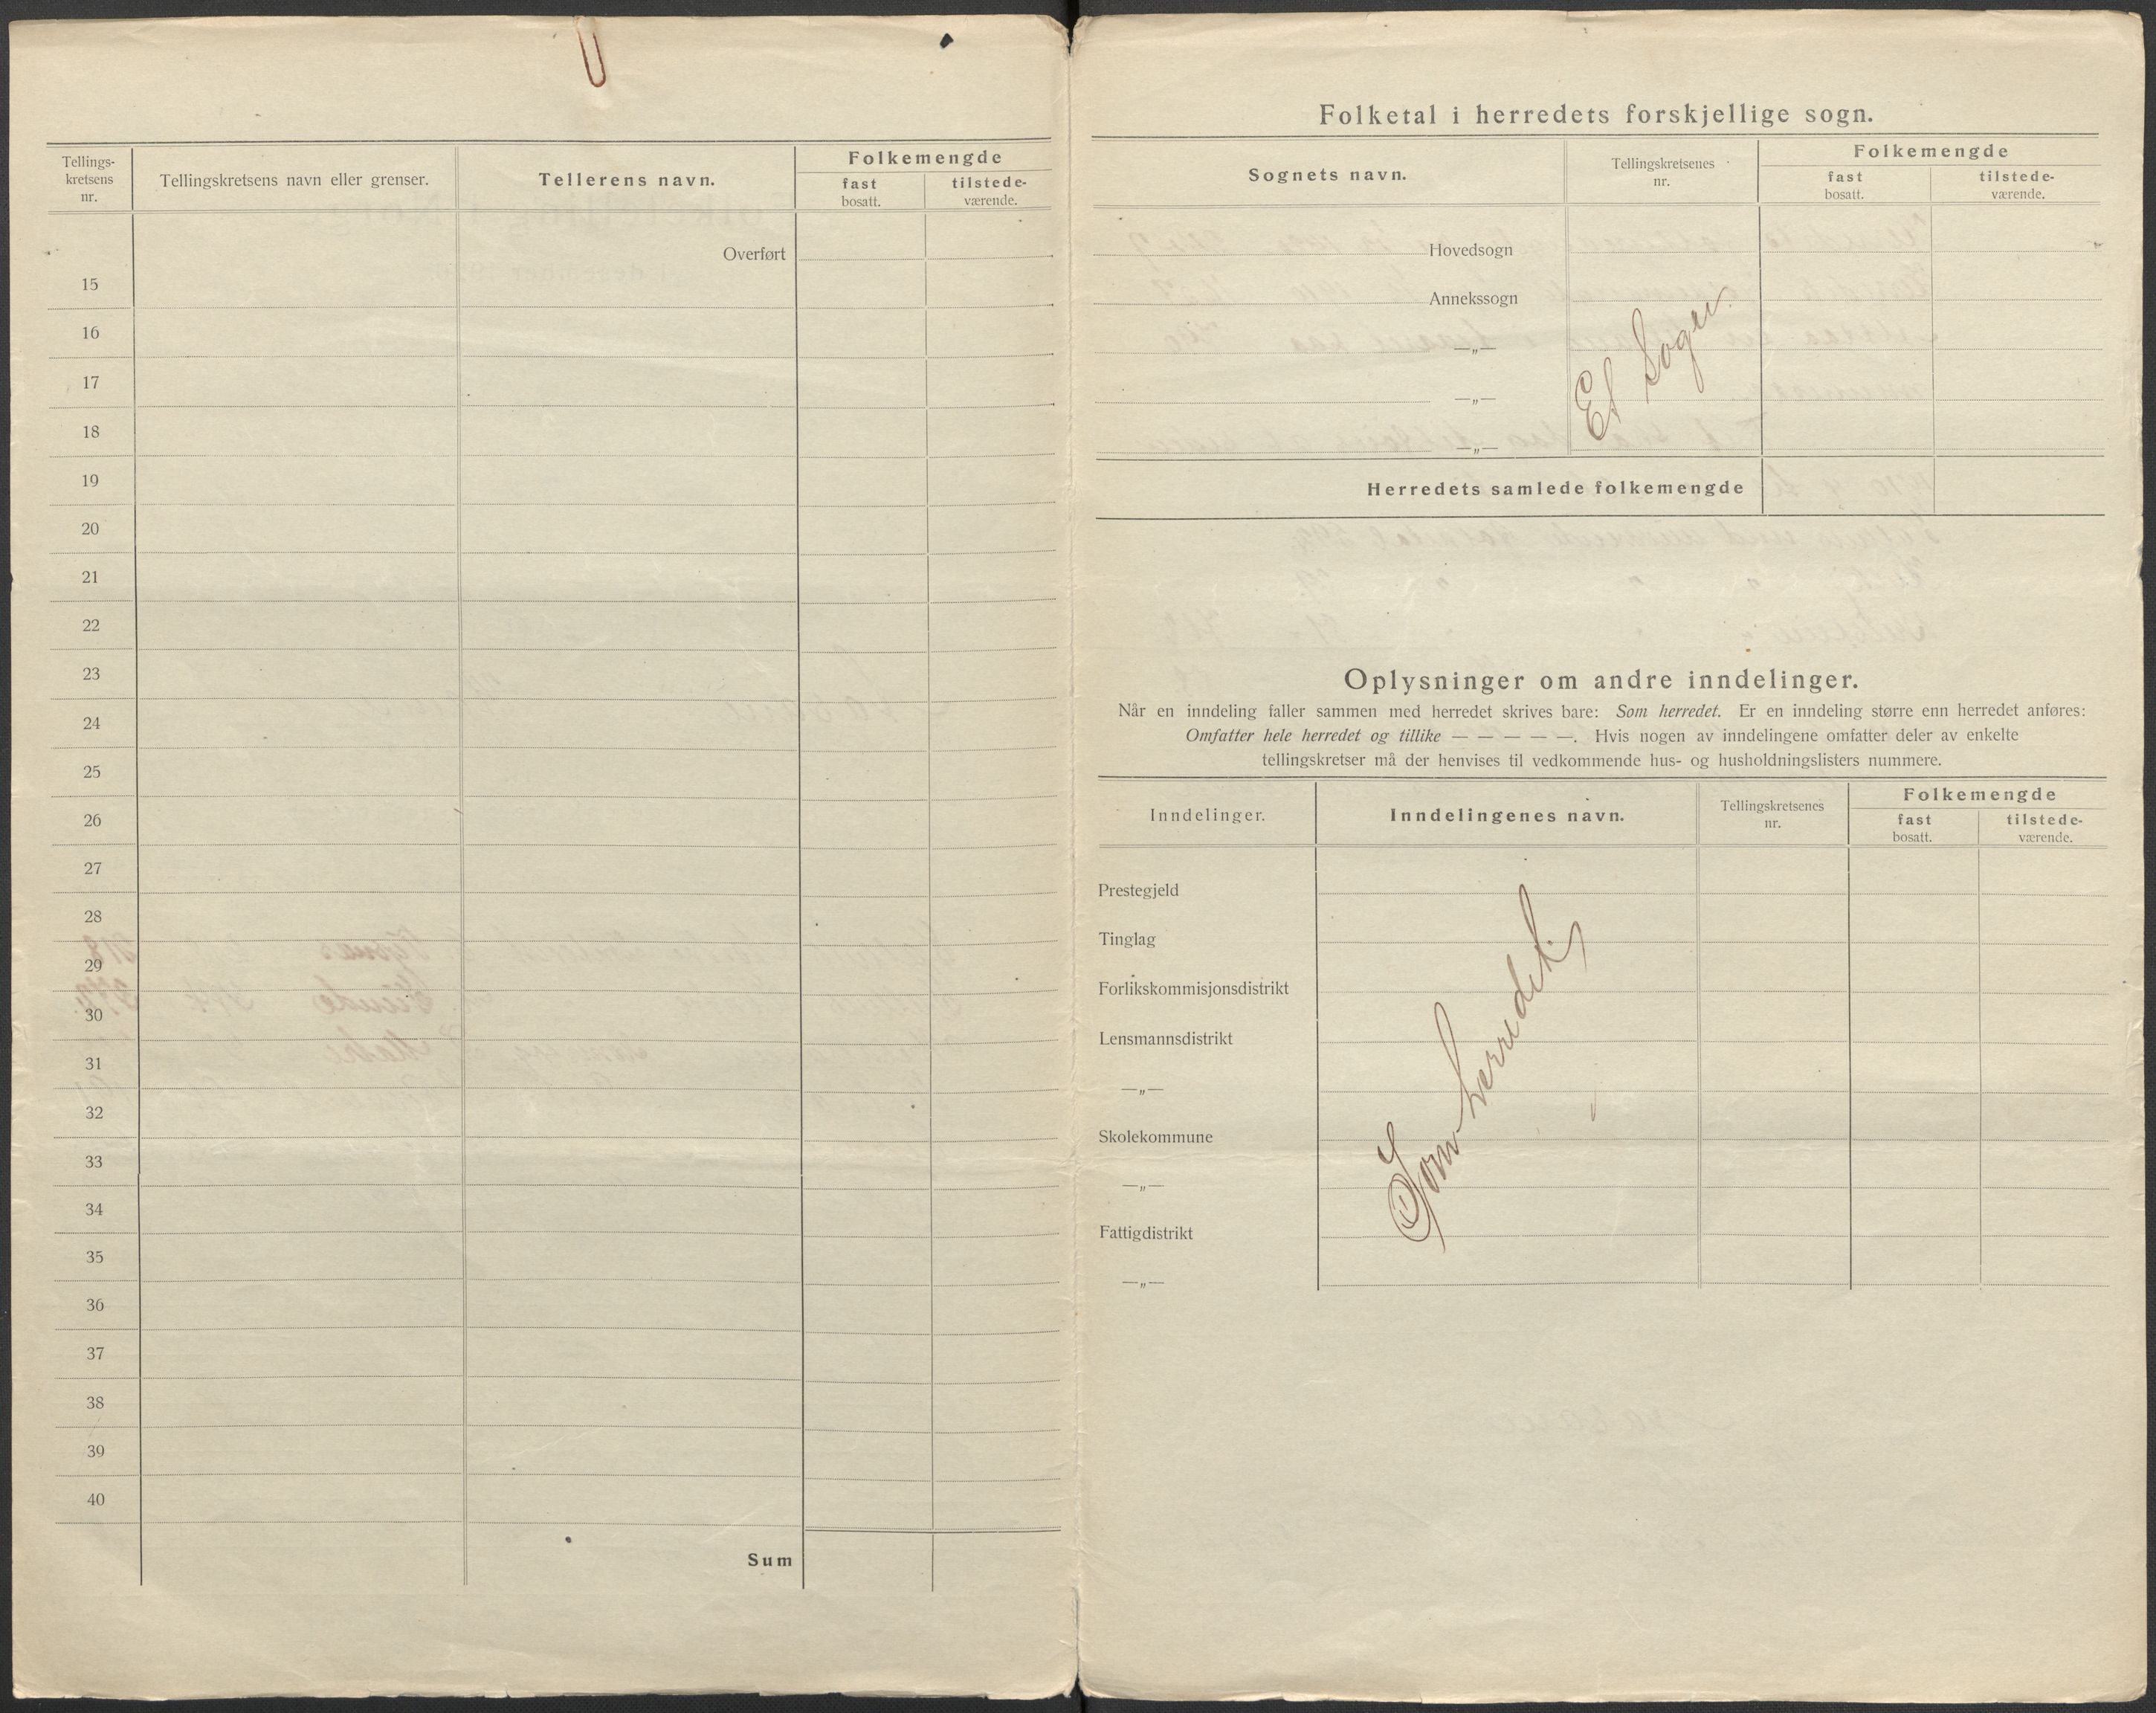 Tellings-
kretsens
nr.
Tellingskretsens navn eller grenser.
Tellerens navn.
Folkemengde
fast
bosatt.
tilstede-
værende.
Overført
15
16
17
18
19
20
21
22
23
24
25
26
27
28
29
30
31
32
33
34
35
36
37
38
39
40
Sum
Folketal i herredets forskjellige sogn.
Sognets navn.
Tellingskretsenes
nr.
Folkemengde
fast
bosatt.
tilstede-
værende.
Hovedsogn
Annekssogn
—„—
—„—
—„—
Et Sogn.
Herredets samlede folkemengde
Oplysninger om andre inndelinger.
Når en inndeling faller sammen med herredet skrives bare: Som herredet. Er en inndeling større enn herredet anføres:
Omfatter hele herredet og tillike — — — — —. Hvis nogen av inndelingene omfatter deler av enkelte
tellingskretser må der henvises til vedkommende hus- og husholdningslisters nummere.
Inndelinger.
Inndelingenes navn.
Tellingskretsenes
nr.
Folkemengde
fast
bosatt.
tilstede-
værende.
Prestegjeld
Tinglag
Forlikskommisjonsdistrikt
Lensmannsdistrikt
—„—
Skolekommune
—„—
Fattigdistrikt
—„—
Som herredet.